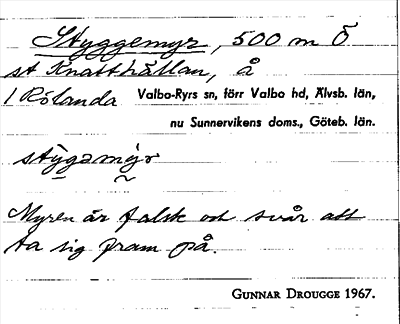 Styggemyr, 500 m Ö
st Knatthällan, å
1 Rölanda Valbo-Ryrs sn, förr Valbo hd, Älvsb. län,
nu Sunnervikens doms., Göteb. län.
Myren är falsk och svår att
ta sig fram på.
GUNNAR DROUGGE 1967.